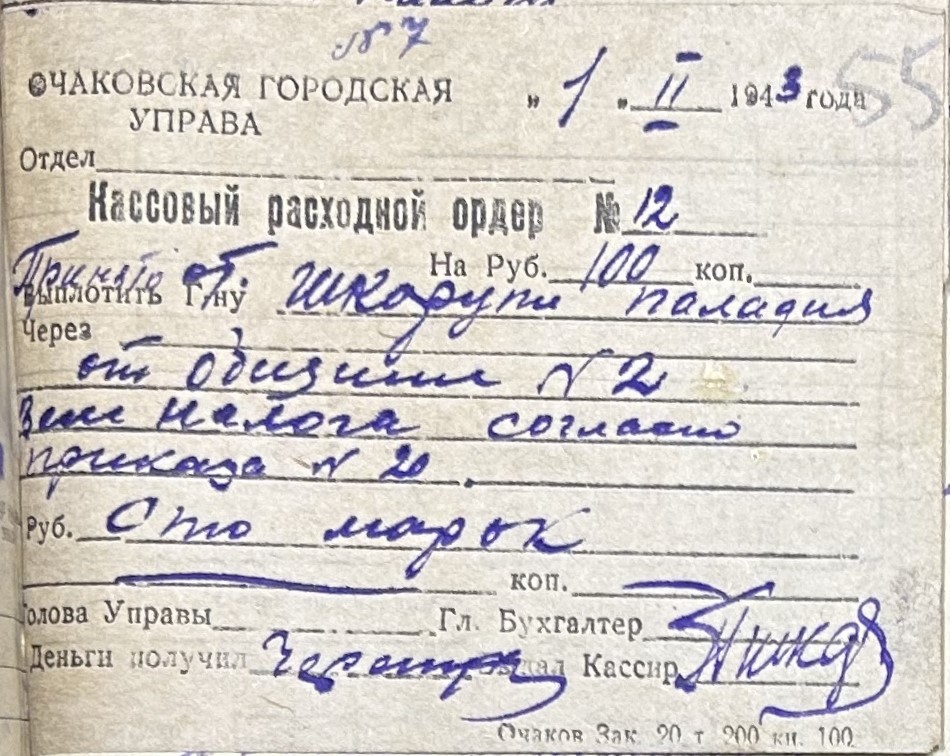 № 7
55
ОЧАКОВСКАЯ ГОРОДСКАЯ
УПРАВА
„ 1 „ II 1943 года
Отдел
Кассовый расходной ордер № 12
На Руб. 100 коп.
Принято от
Выплотить Г-ну Шкарупи Паладия
Через
от общины № 2
Зем налога согласно
приказа № 20
Руб. Сто марок
коп.
Голова Управы Гл. Бухгалтер
Деньги получил Выдал Кассир
Очаков Зак. 20 т. 200 кн. 100